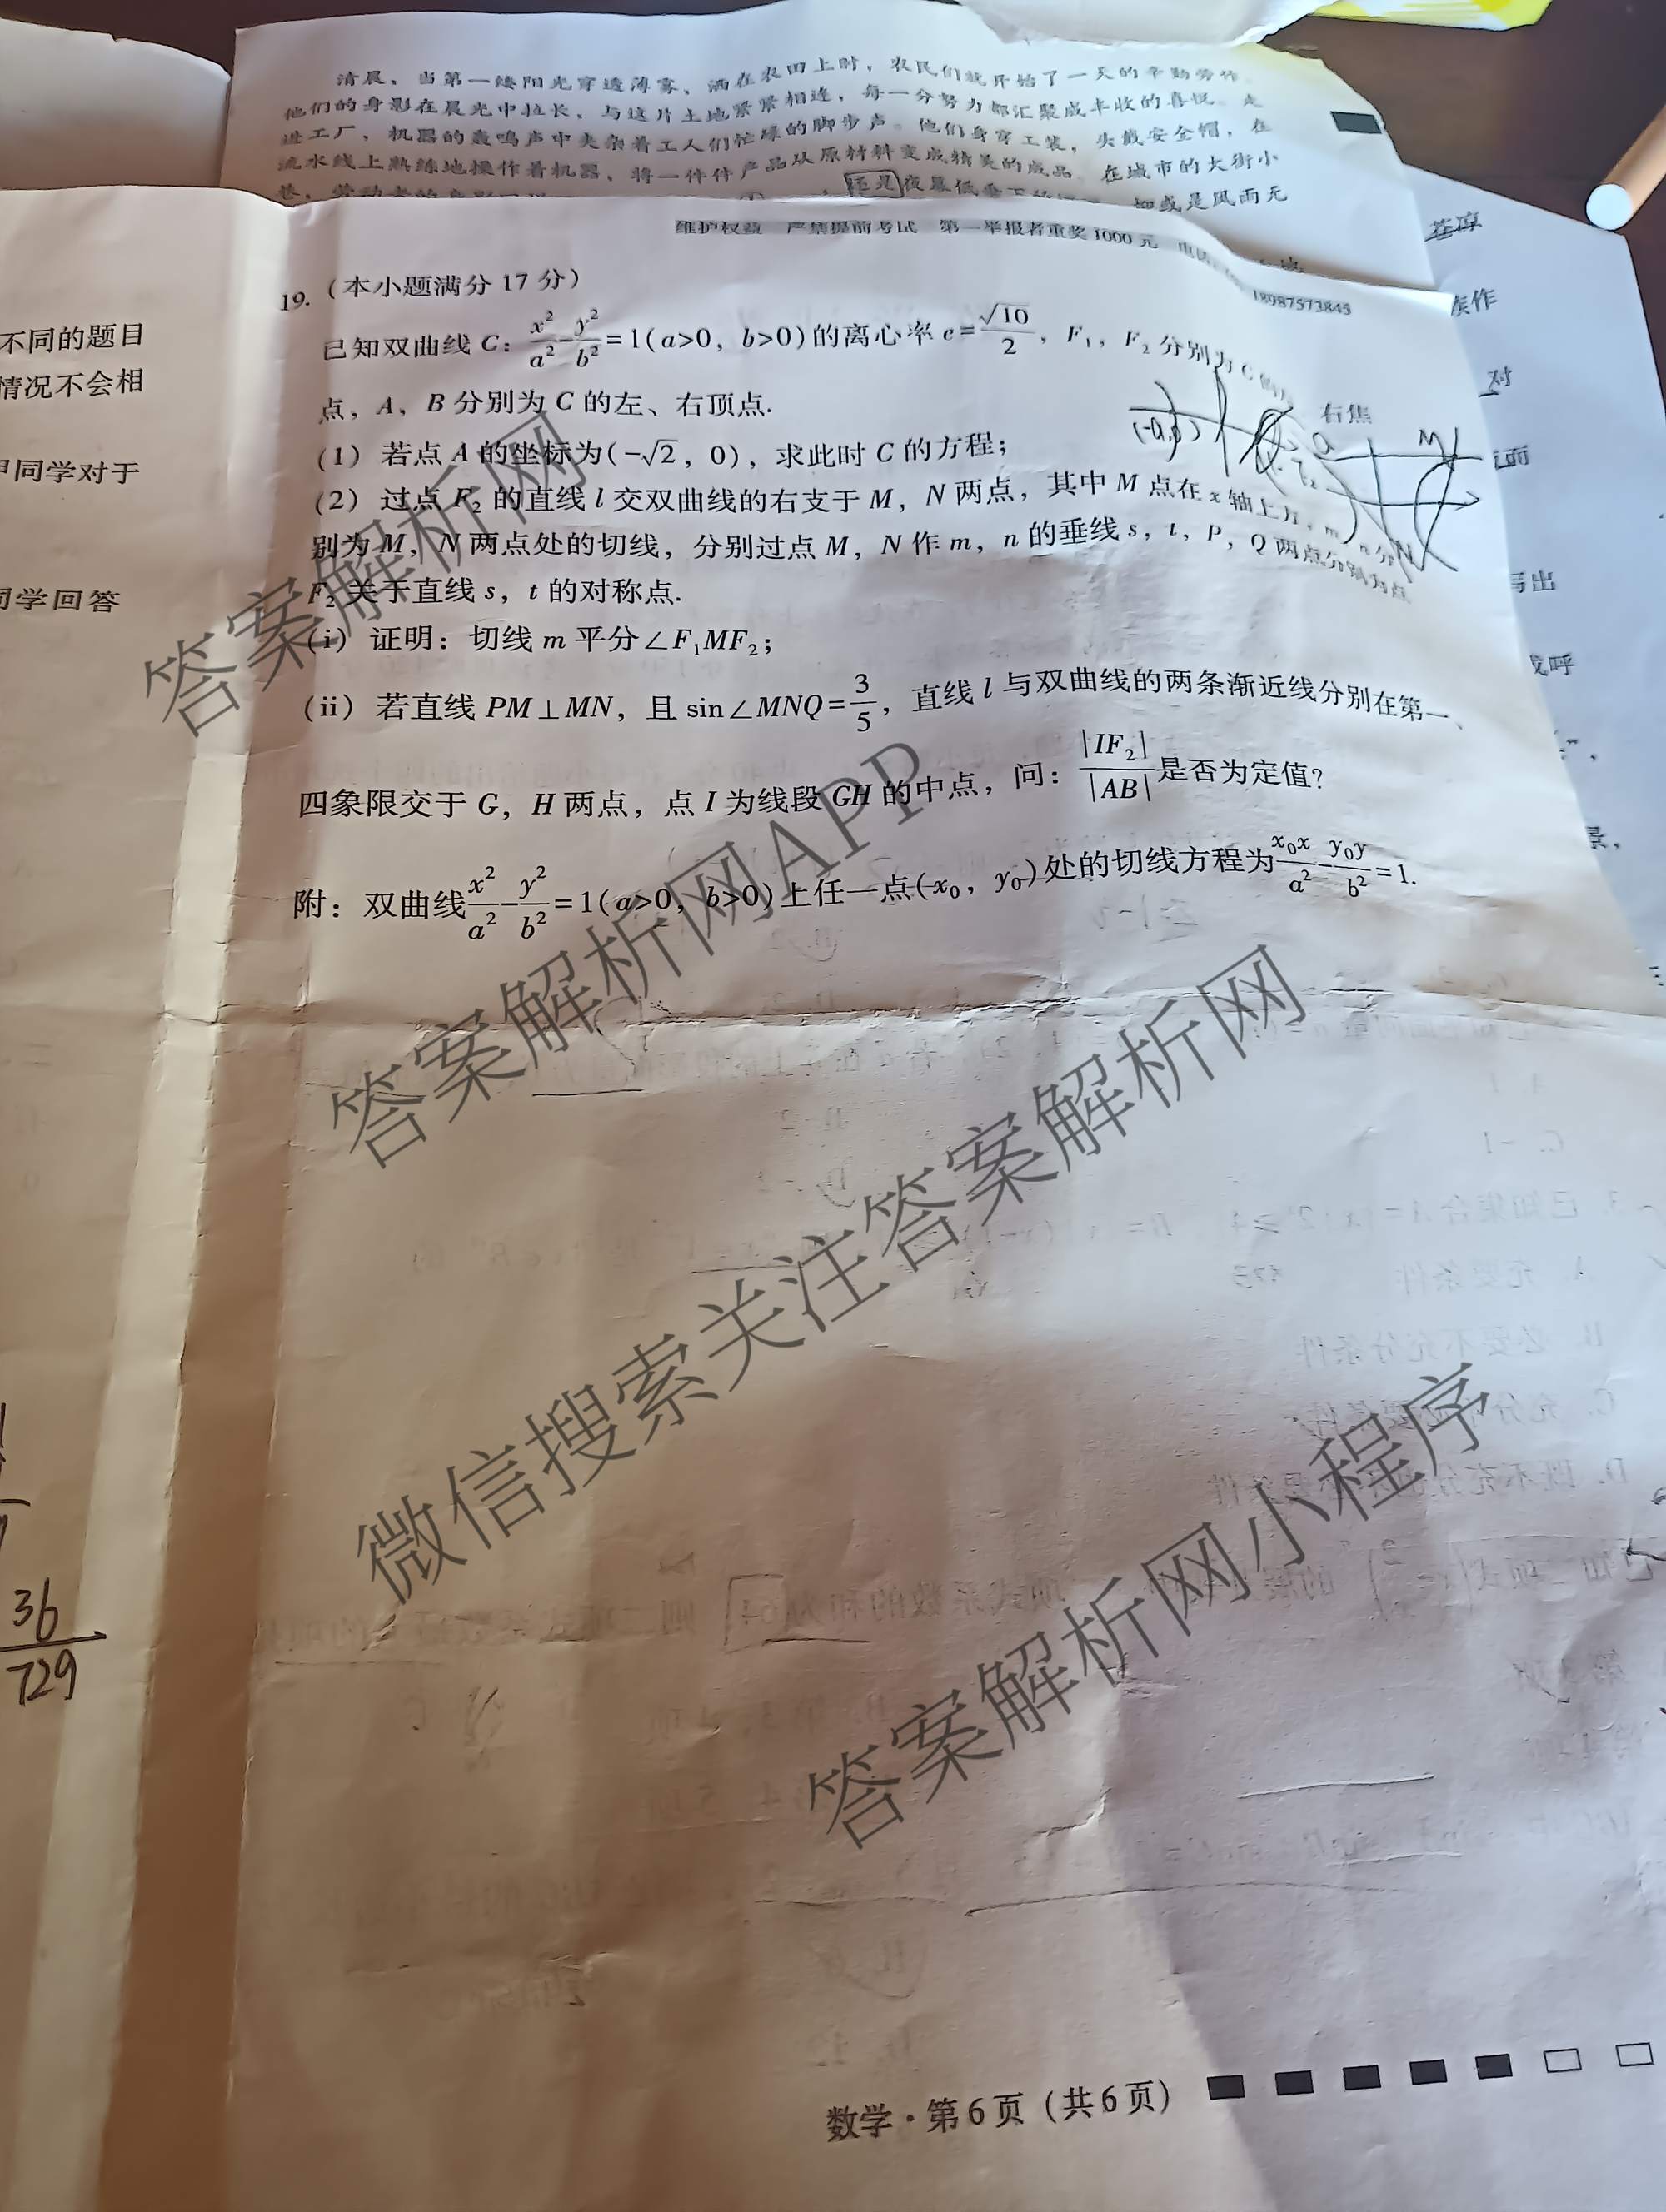 清晨，当第一缕阳光穿透薄雾，洒在农田上时，农民们就开始了一天的辛勤劳作。
他们的身影在晨光中拉长，与这片土地紧紧相连，每一分努力都汇聚成丰收的喜悦。走
进工厂，机器的轰鸣声中夹杂着工人们忙碌的脚步声。他们身穿工装，头戴安全帽，在
流水线上熟练地操作着机器，将一件件产品从原材料变成精美的成品。在城市的大街小
还是夜幕低垂 抑或是风雨无
维护权益 严禁提前考试 第一举报者重奖1000元 电话
18987573845
苍凉
不同的题目
情况不会相
同学对于
同学回答
19.（本小题满分17分）
已知双曲线C：x²/a²-y²/b²=1(a>0，b>0)的离心率e=√10/2，F₁，F₂分别为C的
右焦
点，A，B分别为C的左、右顶点.
（1）若点A的坐标为(-√2，0)，求此时C的方程；
（2）过点F₂的直线l交双曲线的右支于M，N两点，其中M点在x轴上方，m，n分
别为M，N两点处的切线，分别过点M，N作m，n的垂线s，t，P，Q两点分别为点
F₂关于直线s，t的对称点.
（i）证明：切线m平分∠F₁MF₂；
（ii）若直线PM⊥MN，且sin∠MNQ=3/5，直线l与双曲线的两条渐近线分别在第一、
四象限交于G，H两点，点I为线段GH的中点，问：|IF₂|/|AB|是否为定值？
附：双曲线x²/a²-y²/b²=1(a>0，b>0)上任一点(x₀，y₀)处的切线方程为x₀x/a²-y₀y/b²=1.
36/729
数学·第6页（共6页）
答案解析网
答案解析网APP
微信搜索关注答案解析网
答案解析网小程序